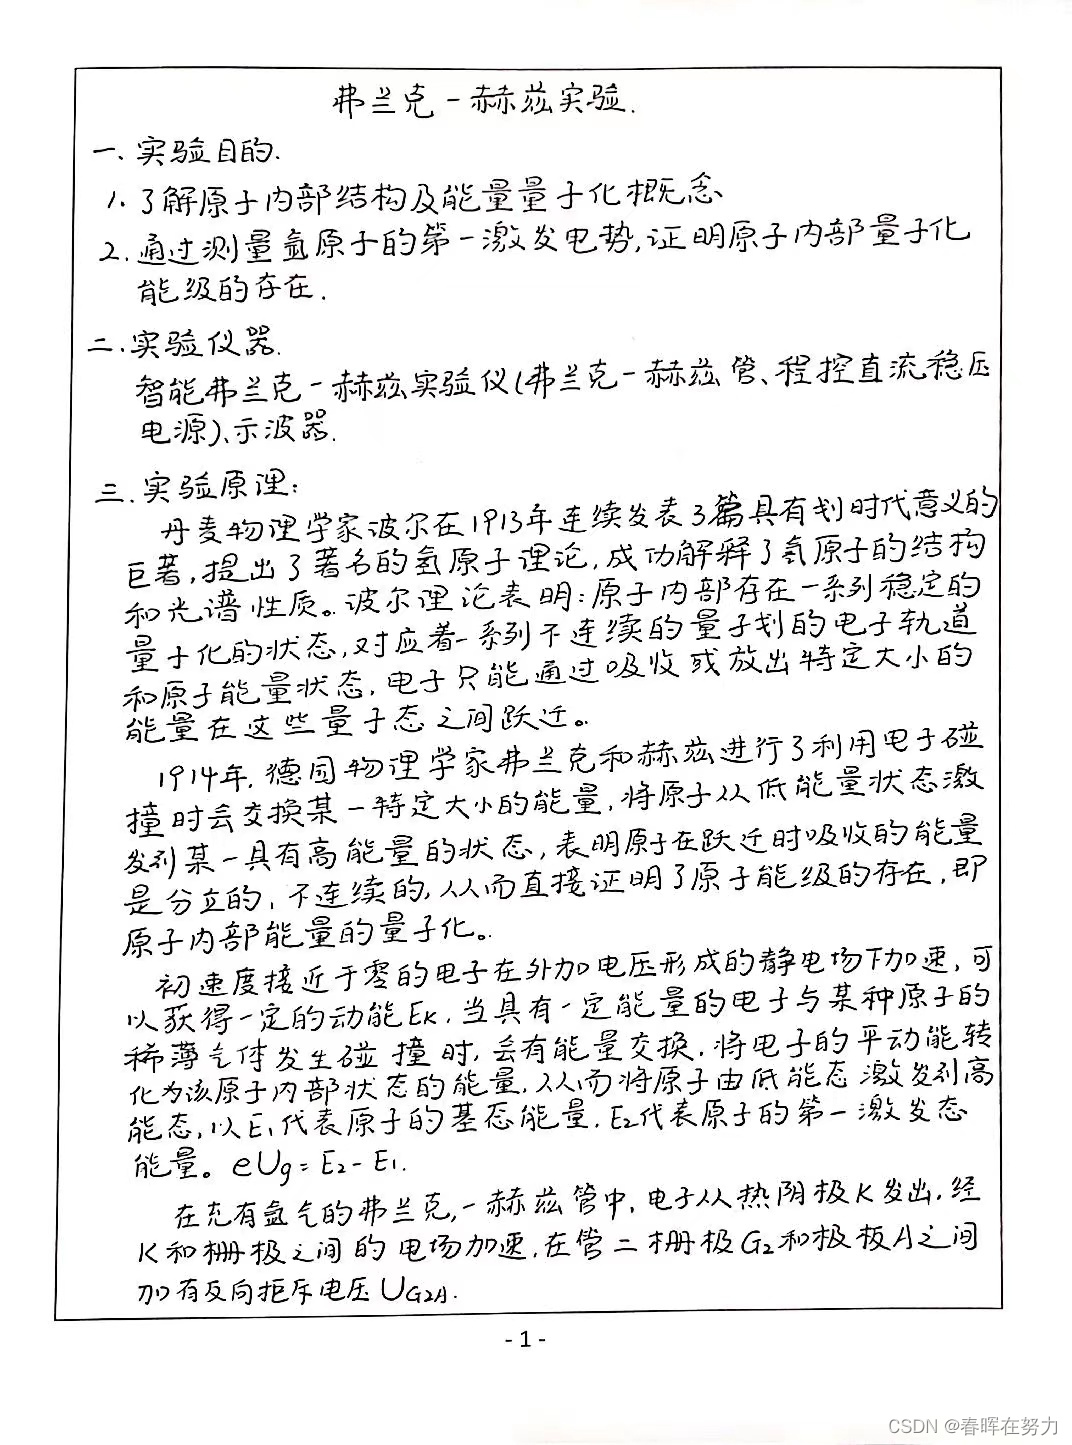 弗兰克-赫兹实验.
一.实验目的.
1.了解原子内部结构及能量量子化概念
2.通过测量氩原子的第一激发电势,证明原子内部量子化
能级的存在.
二.实验仪器.
智能弗兰克-赫兹实验仪(弗兰克-赫兹管、程控直流稳压
电源)、示波器.
三.实验原理:
丹麦物理学家波尔在1913年连续发表了3篇具有划时代意义的
巨著,提出了著名的氢原子理论,成功解释了氢原子的结构
和光谱性质。波尔理论表明:原子内部存在一系列稳定的
量子化的状态,对应着一系列不连续的量子划的电子轨道
和原子能量状态,电子只能通过吸收或放出特定大小的
能量在这些量子态之间跃迁。
1914年,德国物理学家弗兰克和赫兹进行了利用电子碰
撞时会交换某一特定大小的能量,将原子从低能量状态激
发到某一具有高能量的状态,表明原子在跃迁时吸收的能量
是分立的,不连续的,从而直接证明了原子能级的存在,即
原子内部能量的量子化。
初速度接近于零的电子在外加电压形成的静电场下加速,可
以获得一定的动能EK.当具有一定能量的电子与某种原子的
稀薄气体发生碰撞时,会有能量交换.将电子的平动能转
化为该原子内部状态的能量,从而将原子由低能态激发到高
能态,以E1代表原子的基态能量,E2代表原子的第一激发态
能量。eUg=E2-E1.
在充有氩气的弗兰克,-赫兹管中,电子从热阴极K发出.经
K和栅极之间的电场加速,在管二栅极G2和极板A之间
加有反向拒斥电压UG2A.
-1-
CSDN @春晖在努力